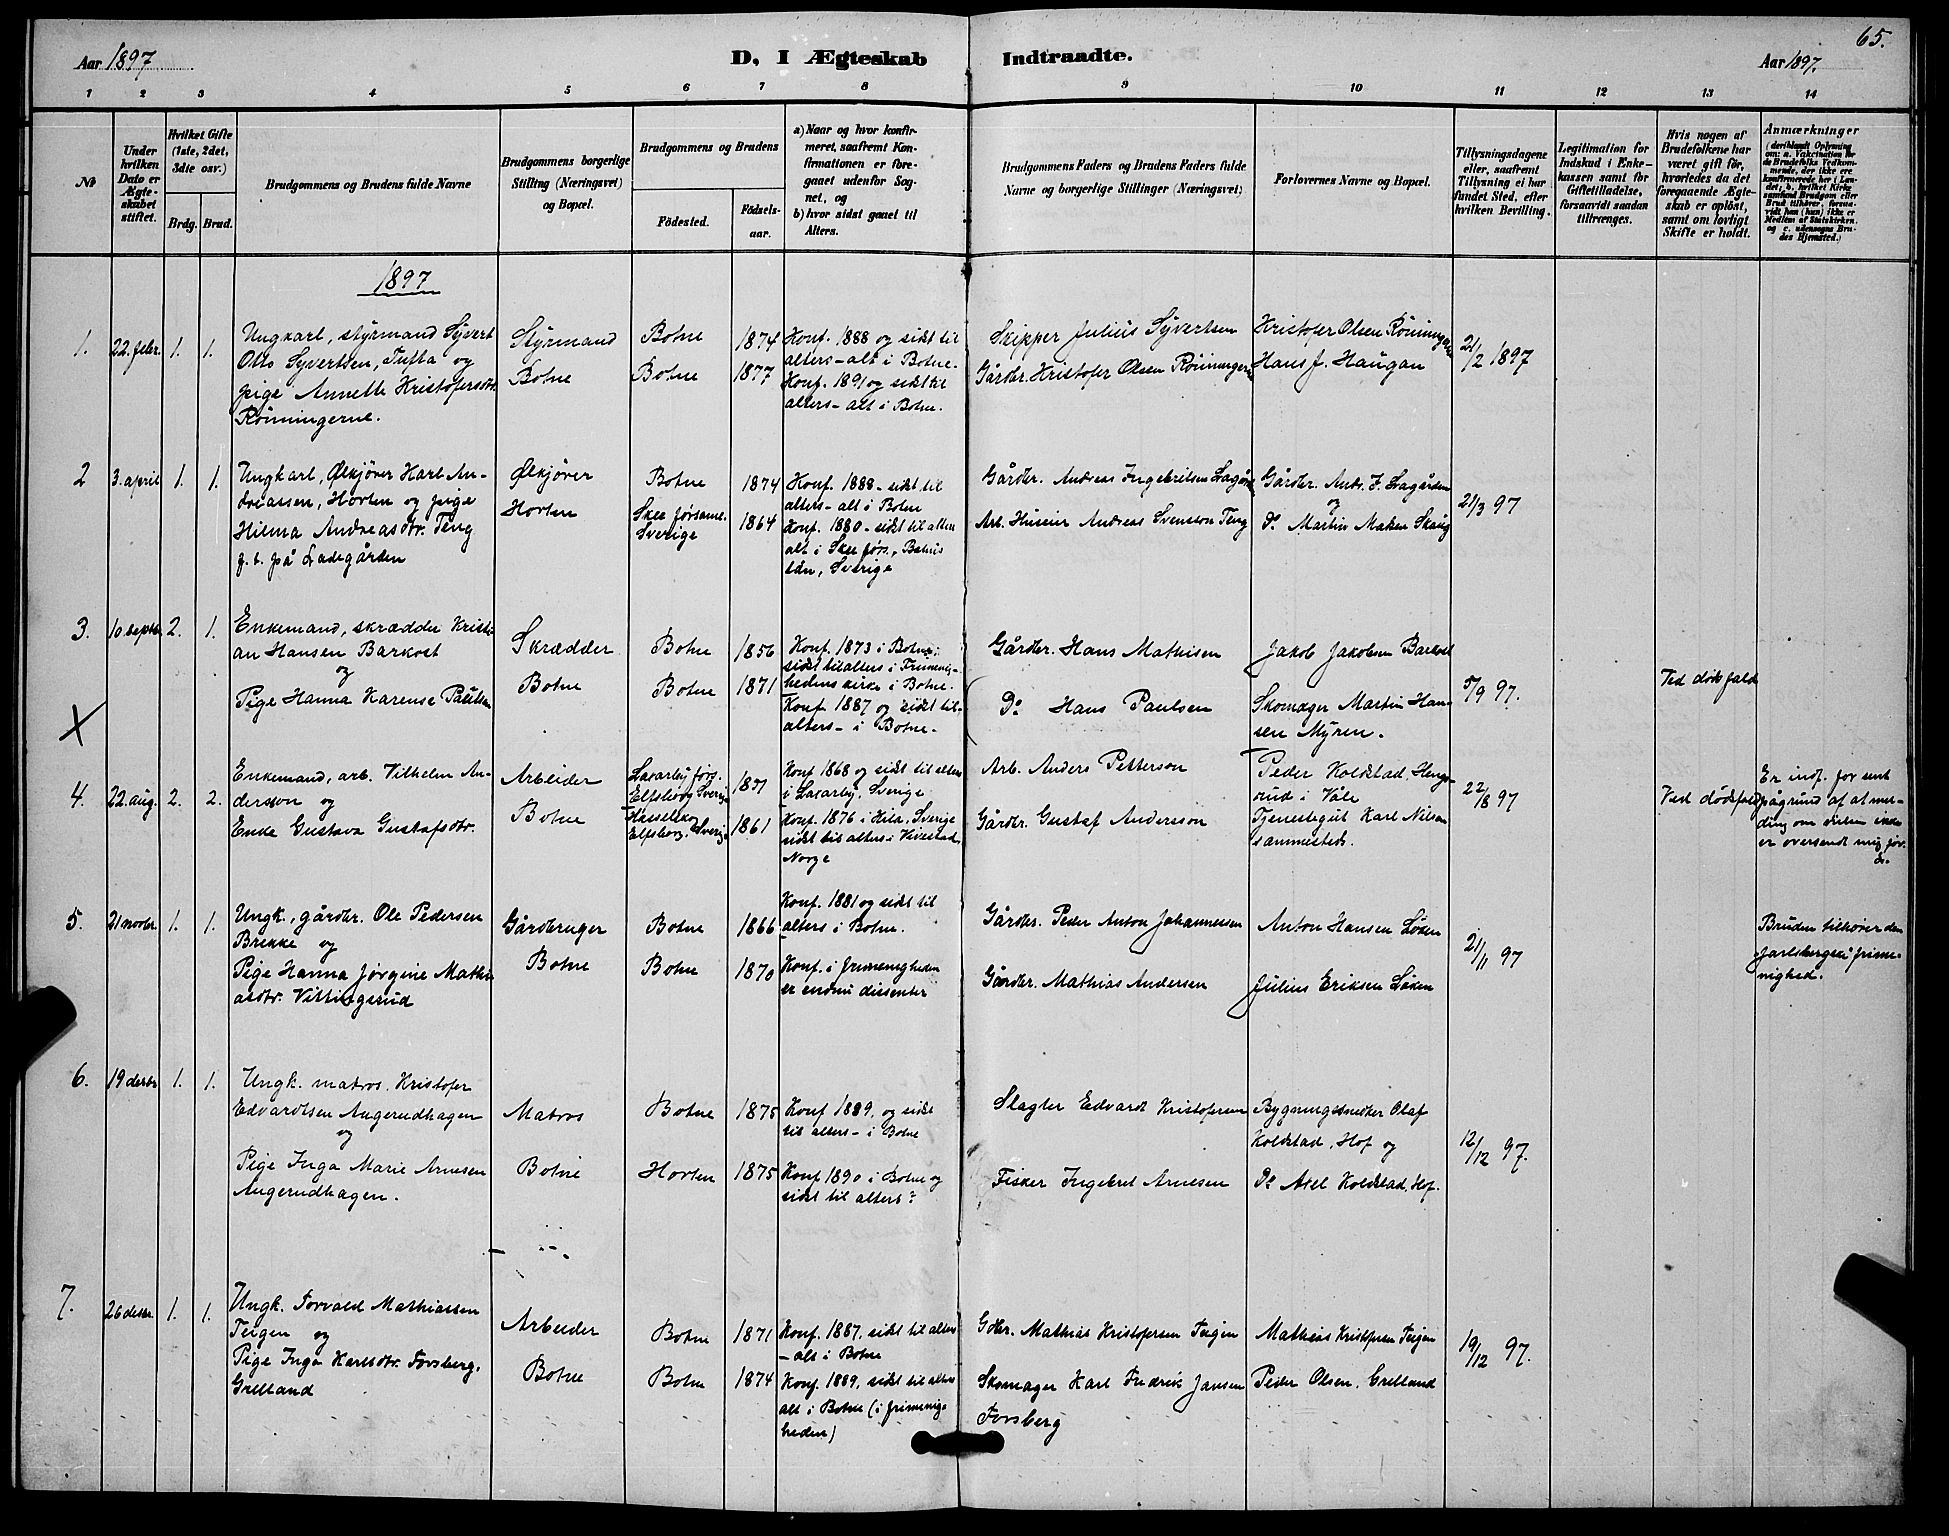 65.
Aar 1897
D, I Ægteskab Indtraadte.
Aar 1897.
1 2 3 4 5 6 7 8 9 10 11 12 13 14
No
Under hvilken Dato er Ægteskabet stiftet.
Hvilket Gifte (1ste, 2det, 3die osv.)
Brdg. Brud.
Brudgommens og Brudens fulde Navne
Brudgommens borgerlige Stilling (Næringsvei) og Bopæl.
Brudgommens og Brudens
Fødested.
Fødselsaar.
a) Naar og hvor konfirmeret, saafremt Konfirmationen er foregaaet udenfor Sognet, og
b) hvor sidst gaaet til Alters.
Brudgommens Faders og Brudens Faders fulde Navne og borgerlige Stillinger (Næringsvei)
Forlovernes Navne og Bopæl.
Tillysningsdagene eller, saafremt Tillysning ei har fundet Sted, efter hvilken Bevilling.
Legitimation for Indskud i Enkekassen samt for Giftetilladelse, forsaavidt saadan tiltrænges.
Hvis nogen af Brudefolkene har været gift før, hvorledes da det foregaaende Ægteskab er opløst, samt om lovligt Skifte er holdt.
Anmærkninger (deriblandt Oplysning om: a. Vaccination for de Brudefolks Vedkommende, der ikke ere konfirmerede her i Landet; b. hvilket Kirkesamfund Brudgom eller Brud tilhører, forsaavidt han (hun) ikke er Medlem af Statskirken. og c. udensogns Brudes Hjemsted.)
1897
1. 22. febr. 1. 1.
Ungkarl, styrmand Syvert
Otto Syvertsen, Tufta og
pige Annette Kristofersdtr.
Rönningerne.
Styrmand
Botne
Botne 1874
Botne 1877
Konf. 1888 og sidst til
alters - alt i Botne.
Konf. 1891 og sidst til
alters - alt i Botne.
Skipper Julius Syvertsen
Gårdbr. Kristofer Olsen Rönningen
Kristofer Olsen Rönningen
Hans J. Haugan
21/2 1897
2 3. april 1. 1.
Ungkarl, Ølkjører Karl An-
dreassen, Horten og pige
Hilma Andreasdtr. Teng
f. t. på Ladegården
Ølkjører
Horten
Botne 1874
Skee forsaml. Sverige 1864
Konf. 1888 - sidst til
alters - alt i Botne
Konf. 1880 - sidst til alters
alt i Skee förs., Bohus
län, Sverige
Gårdbr. Andreas Ingebritsen
Arb. Husein Andreas Svensson Teng
Gårdbr. Andr. I. Lagården
og
Do Martin Skaug
21/3 97
3. 10. septbr. 2. 1.
Enkemand, skrædder Kristi-
an Hansen Barkost
og
Pige Hanna Karense Paulsen
Skrædder
Botne
Botne 1856
Botne 1871
Konf. 1873 i Botne;
sidst til alters i Frimenig-
hedens kirke i Botne.
Konf. 1887 og sidst til
alters - i Botne.
Gårdbr. Hans Mathisen
Do Hans Paulsen
Jakob Jakobsen Barkost
Skomager Martin Han-
sen Myren.
5/9 97.
Ved dödsfald
X
4. 22. aug. 2. 2.
Enkemand, arb. Vilhelm An-
dersson og
Enke Gustava Gustafsdtr.
Arbeider
Botne
Laxarby förs.
Elfsborg Sverige 1851
Elfsborg, Sverige 1861
Konf 1868 og sidst til alters
i Laxarby, Sverige
Konf. 1876 i Hila, Sverige
sidst til alters i
Norge
Arb. Anders Petterson
Gårdbr. Gustaf Andersson
Peder Koldstad, Hengs-
rud i Våle
Tjenestegut Karl Nilsen
sammesteds.
22/8 97
Ved dödsfald
Er indf. for sent
pågrund af at mel-
ding om vielsen ikke
er oversendt mig för
5. 21 novbr. 1. 1.
Ungk., gårdbr. Ole Pedersen
Brekke og
Pige Hanna Jörgine Mathi-
asdtr. Vittingsrud
Gårdbruger
Botne
Botne 1866
Botne 1870
Konf. 1881 og sidst til
alters i Botne.
Konf. i frimenigheden
er endnu dissenter
Gårdbr. Peder Anton Johannessen
Gårdbr. Mathias Andersen
Anton Hansen Löken
Julius Eriksen Löken
21/11 97
Bruden tilhörer den
Jarlsbergske frime-
nighed.
6. 19 desbr 1. 1.
Ungk. matros Kristofer
Edvardtsen Angerudhagen
og
Pige Inga Marie Arnesen
Angerudhagen.
Matros
Botne
Botne 1875
Horten 1875
Konf 1889. og sidst
til alters - i Botne
Konf 1890 i Botne og
sidst til alters?
Slagter Edvardt Kristofersen
Fisker Ingebret Arnesen
Bygningssnedker Olaf
Koldstad, Hof og
Do Axel Koldstad, Hof.
12/12 97.
7. 26 desbr. 1. 1.
Ungk. Torvald Mathiassen
Teigen og
Pige Inga Karlsdtr. Forsberg,
Grelland
Arbeider
Botne
Botne 1871
Botne 1874
Konf. 1887. sidst til alters
- alt i Botne
Konf. 1889. sidst til alters
alt i Botne (i frimenig-
heden)
Gdbr. Mathias Kristofersen Teigen
Skomager Karl Fredrik Jansen
Forsberg
Mathias Kristofersen Teigen
Peder Olsen, Grelland
19/12 97.